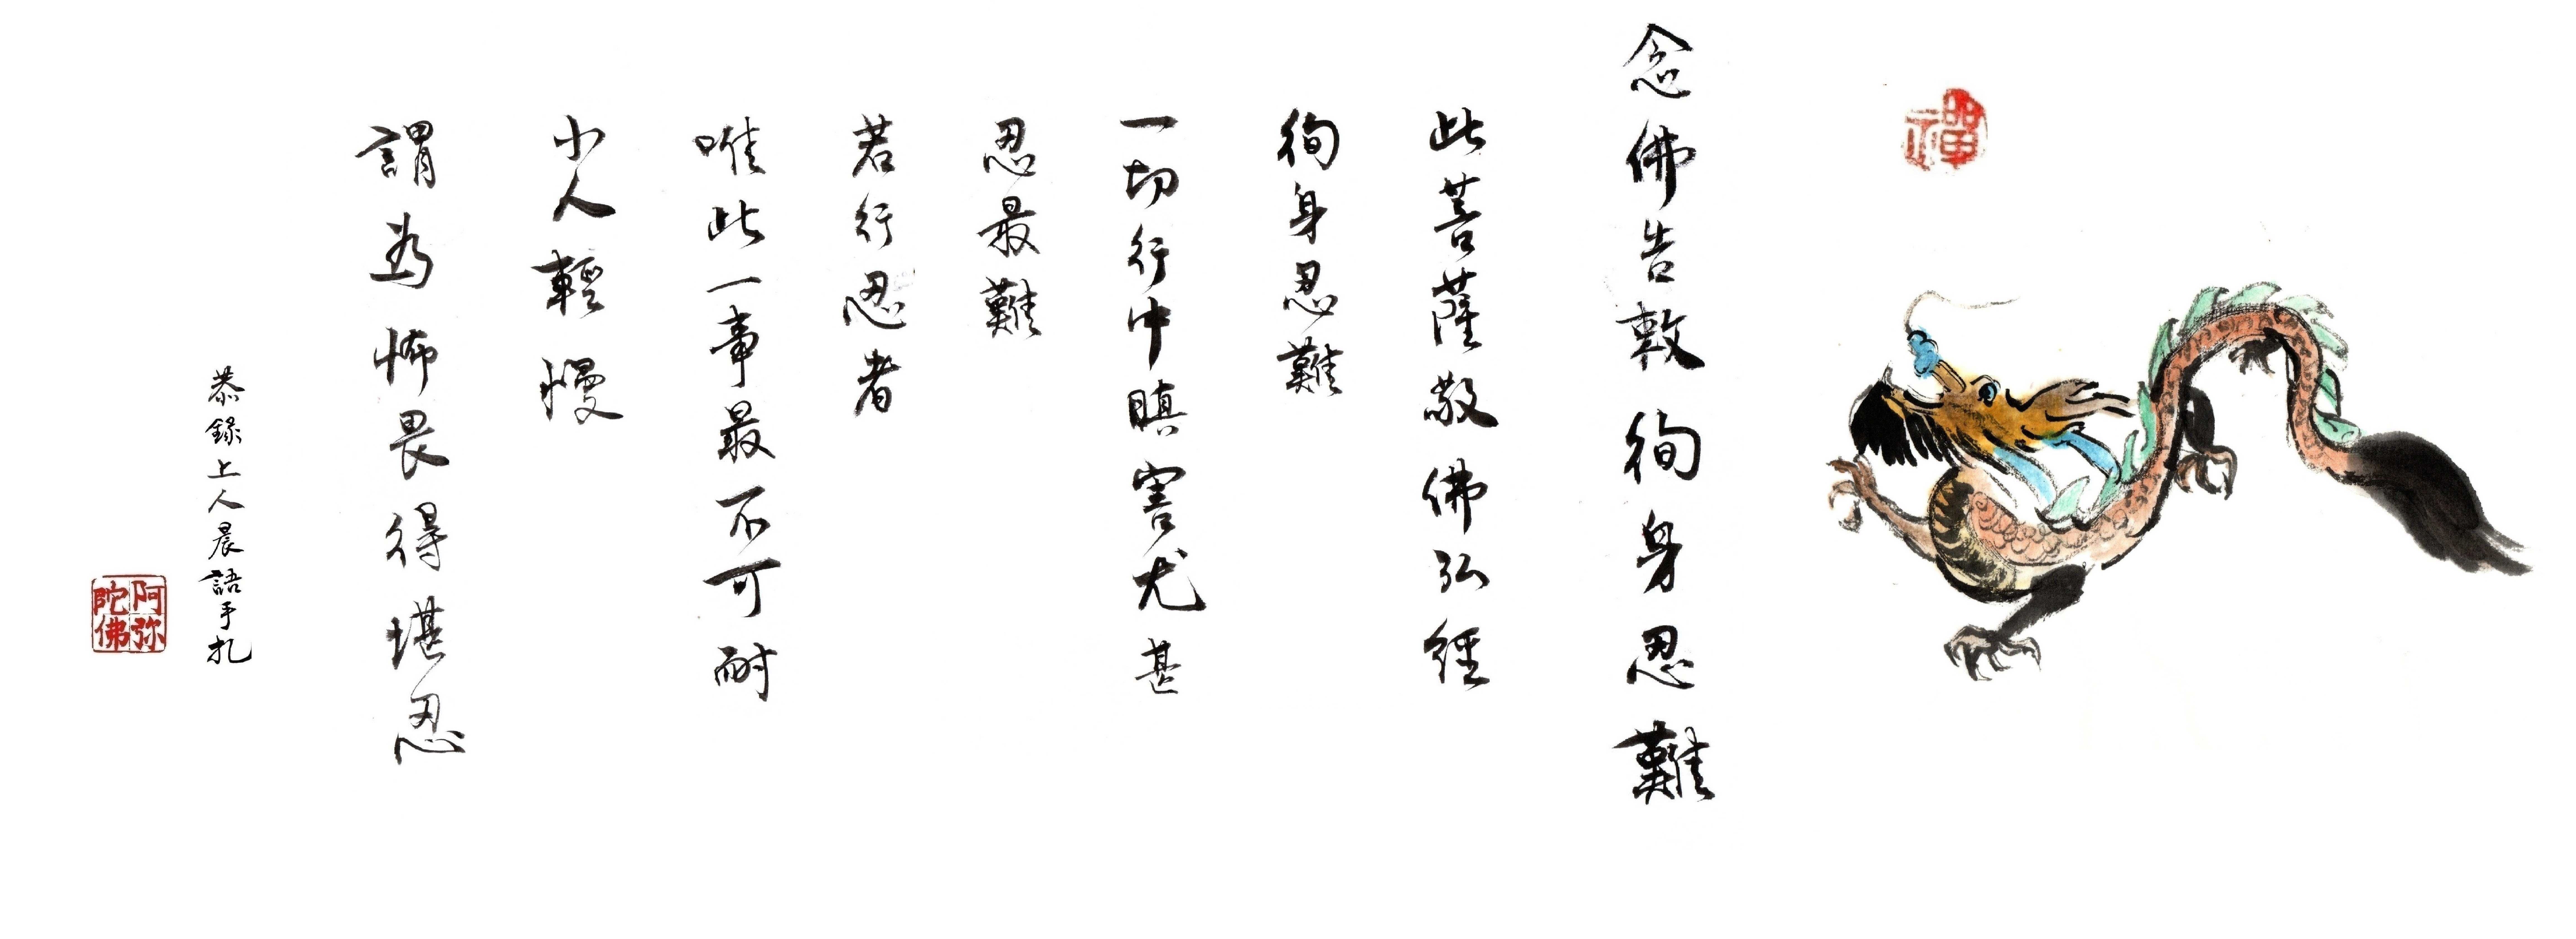 禪
念佛告敦徇身忍難
此菩薩敬佛弘經
徇身忍難
一切行中瞋害尤甚
忍最難
若行忍者
唯此一事最不可耐
小人輕慢
謂為怖畏得堪忍
恭錄上人晨語手札
阿弥
陀佛